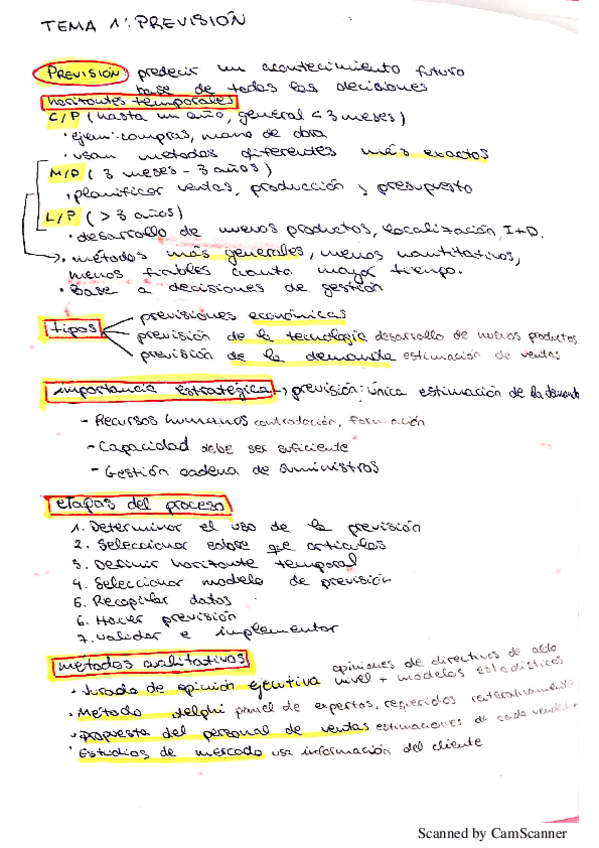 TEMA 1: PREVISIÓN
PREVISIÓN: predecir un acontecimiento futuro
base de todas las decisiones
horizontes temporales
C/P (hasta un año, general < 3 meses)
· ejem: compras, mano de obra
· usan metodos diferentes más exactos
M/P (3 meses - 3 años)
· planificar ventas, producción y presupuesto
L/P (> 3 años)
· desarrollo de nuevos productos, localización, I+D.
→ · métodos más generales, menos cuantitativos,
menos fiables cuanto mayor tiempo.
· Base a decisiones de gestión
tipos
previsiones económicas
previsión de la tecnología desarrollo de nuevos productos
previsión de la demanda estimación de ventas
importancia estratégica → previsión: única estimación de la demanda
- Recursos humanos contratación, formación
- Capacidad debe ser suficiente
- Gestión cadena de suministros
etapas del proceso
1. Determinar el uso de la previsión
2. Seleccionar sobre que articulos
3. Definir horizonte temporal
4. Seleccionar modelo de previsión
5. Recopilar datos
6. Hacer previsión
7. Validar e implementar
métodos cualitativos
· Jurado de opinión ejecutiva opiniones de directivos de alto nivel + modelos estadísticos
· Método delphi panel de expertos, requeridos reiteradamente
· propuesta del personal de ventas estimaciones de cada vendedor
· Estudios de mercado usa información del cliente
Scanned by CamScanner